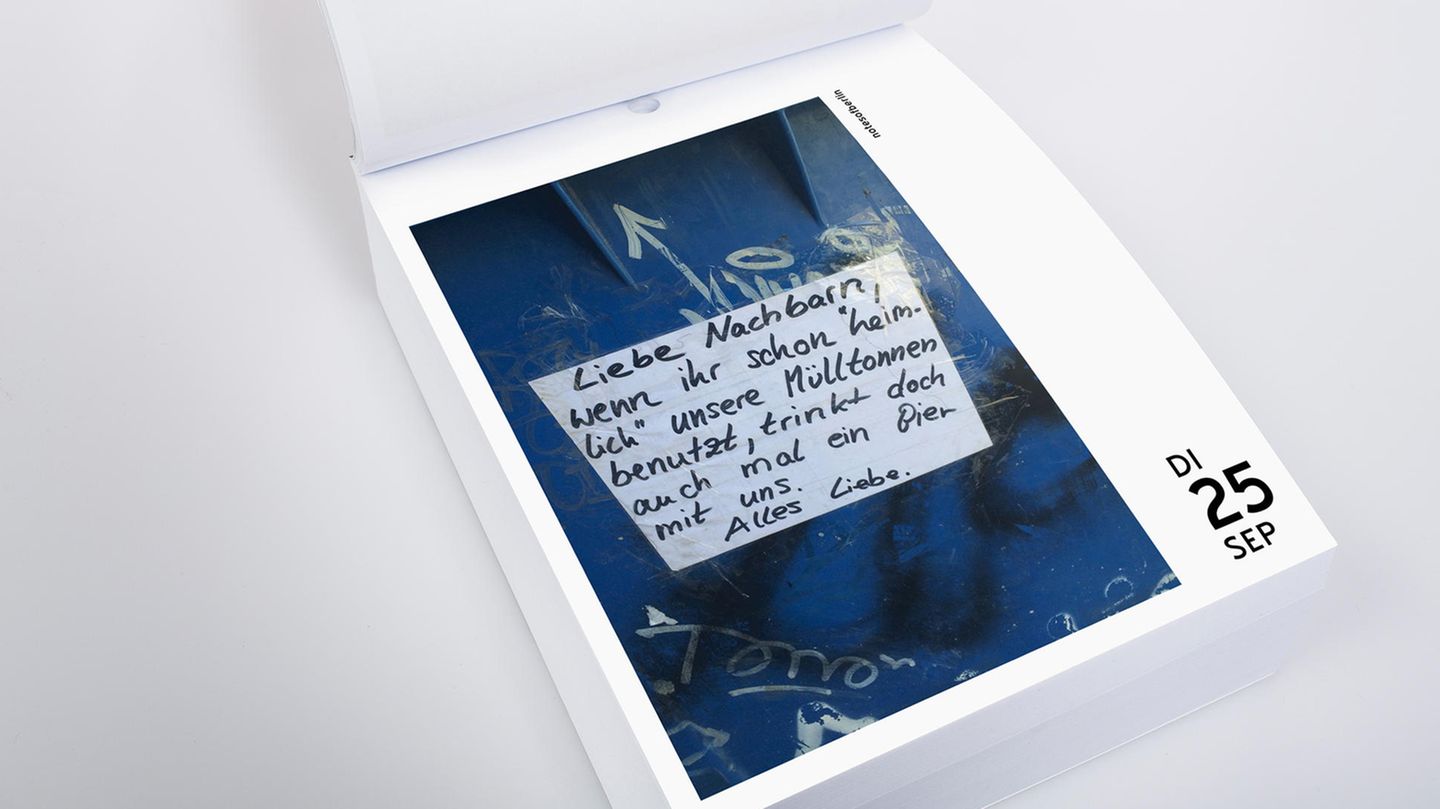 notesofberlin
Liebe Nachbarn,
wenn ihr schon "heim-
lich" unsere Mülltonnen
benutzt, trinkt doch
auch mal ein Bier
mit uns.
Alles Liebe.
DI
25
SEP
Terror